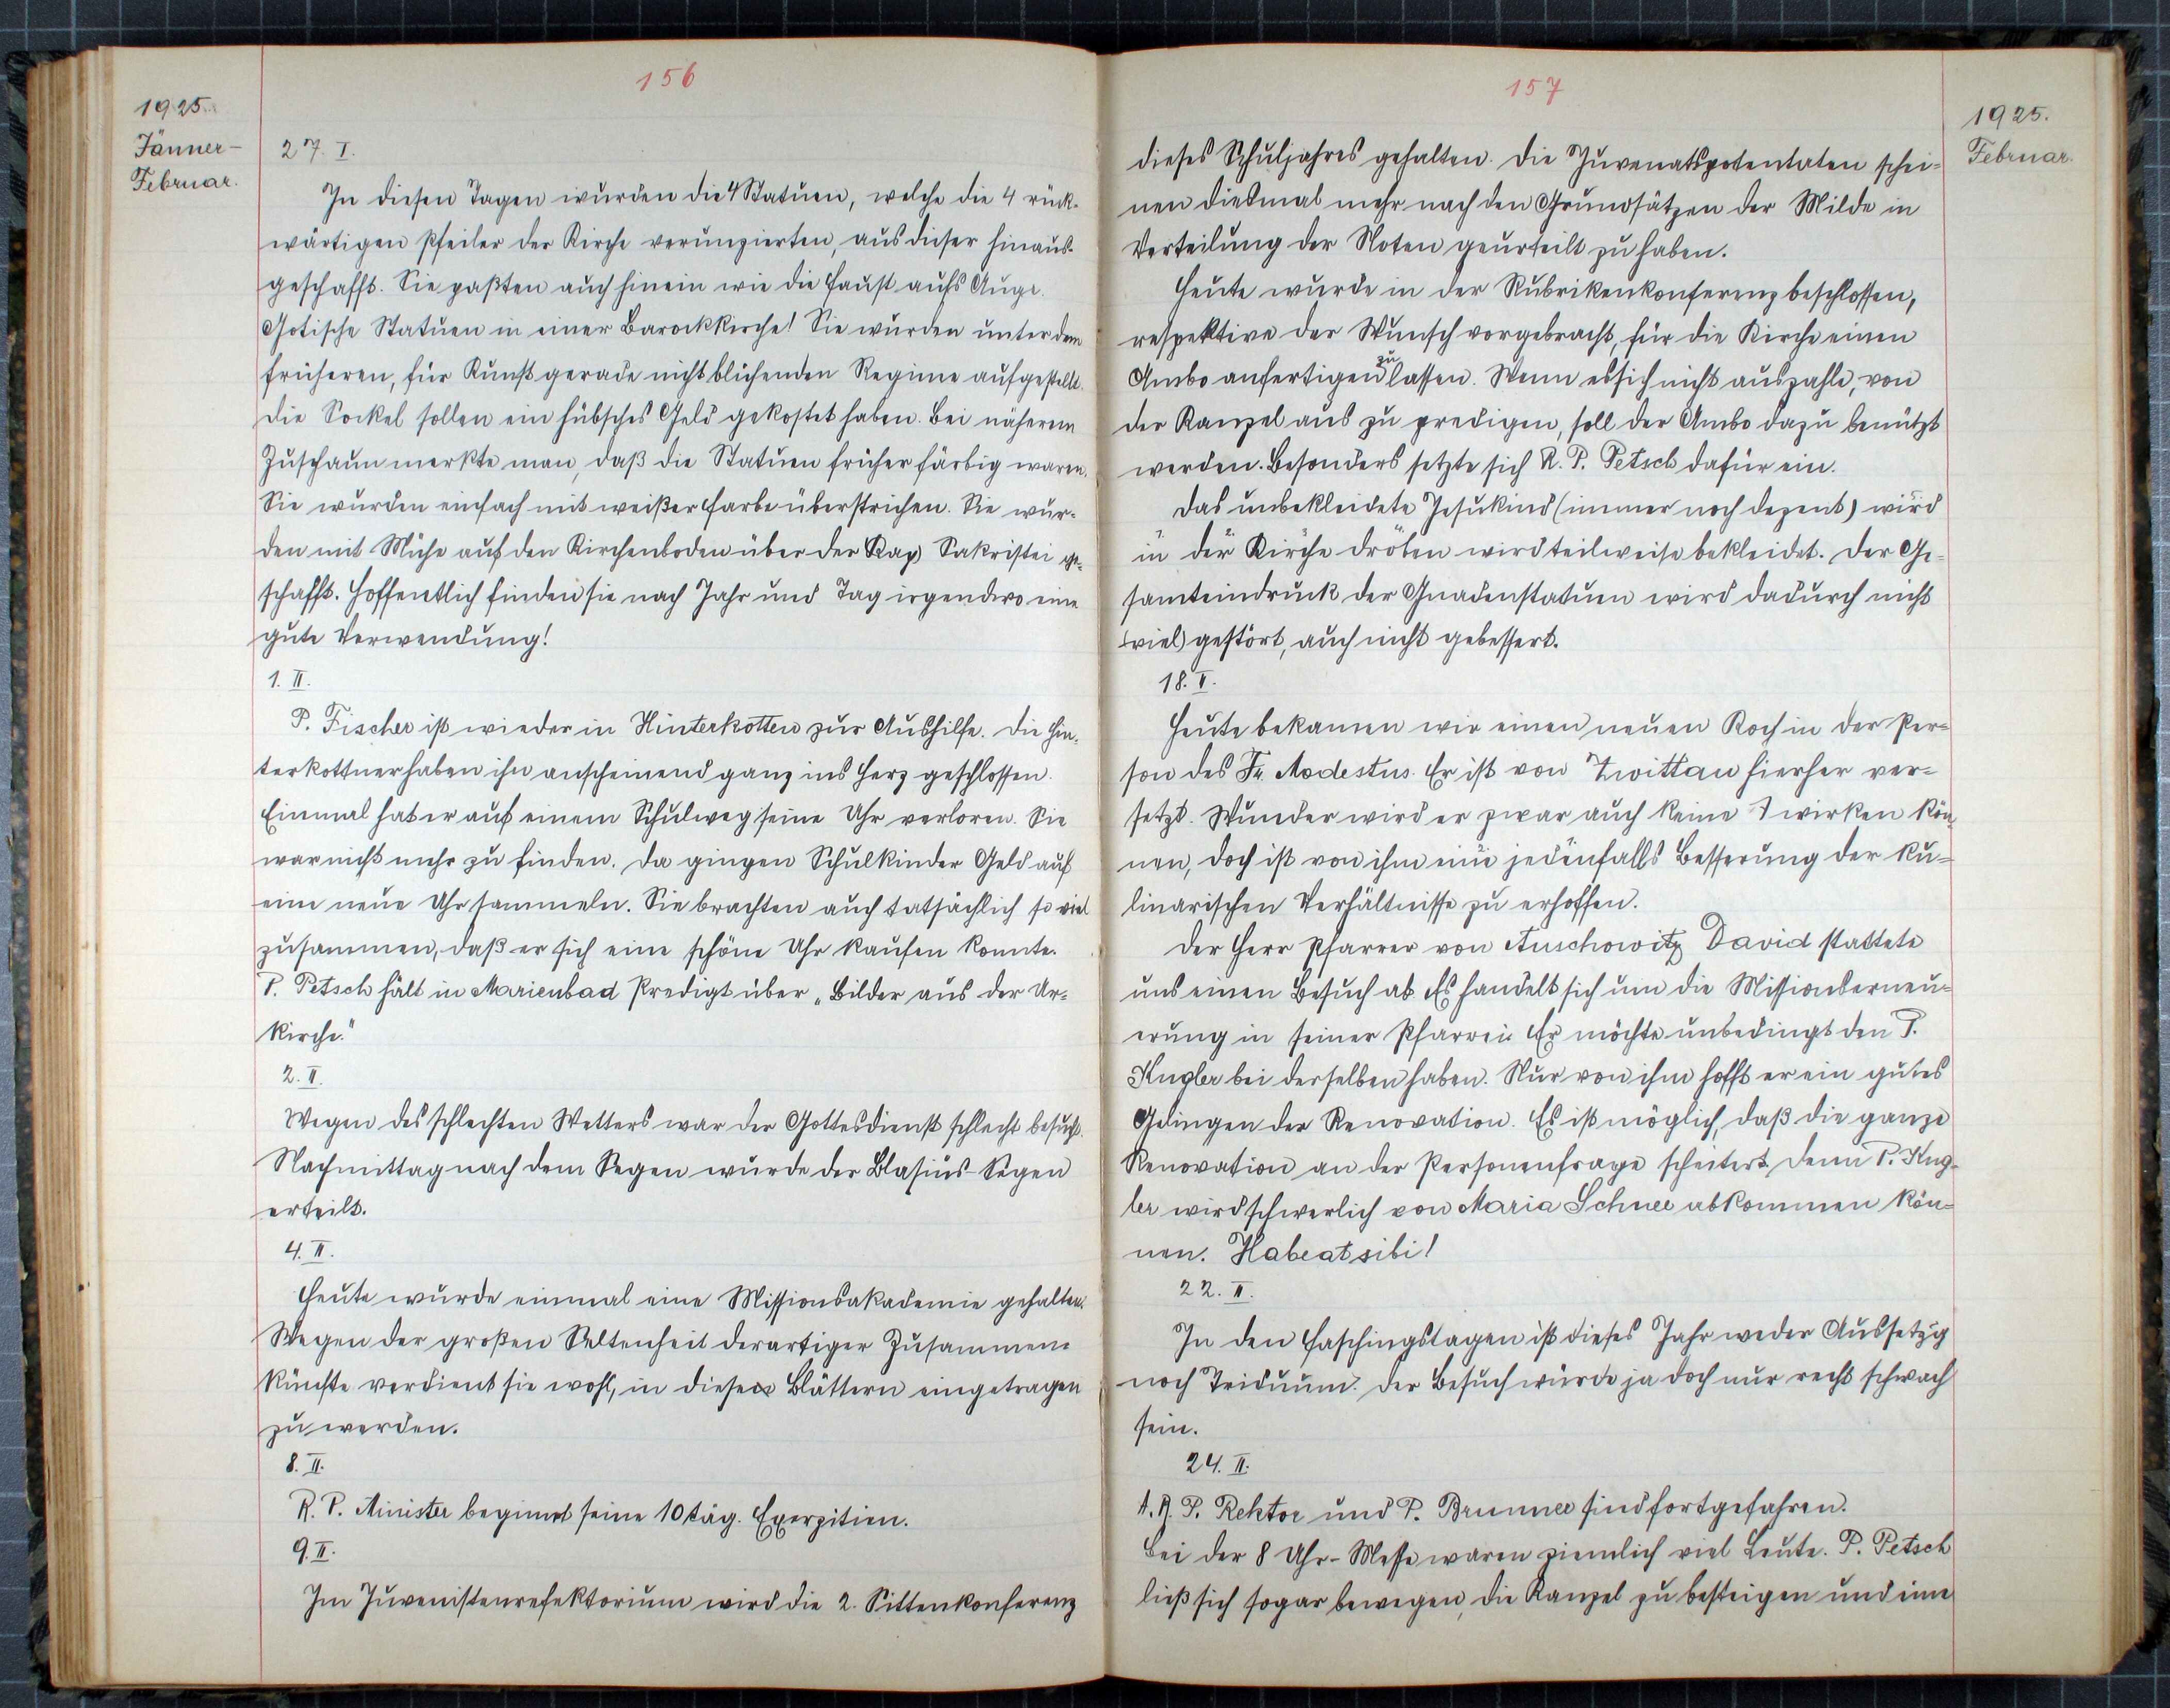 156
1925.
Jänner-
Februar.
27. I.
In diesen Tagen wurden die 4 Statuen, welche die 4 rück-
wärtigen Pfeiler der Kirche verunzierten, aus dieser hinaus-
geschafft. Sie paßten auch hinein wie die Faust aufs Auge.
Gotische Statuen in einer Barockkirche! Sie wurden unter dem
früheren, für Kunst gerade nicht blühenden Regime aufgestellt.
Die Sockel sollen ein hübsches Geld gekostet haben. Bei näherem
Zuschaun merkte man, daß die Statuen früher färbig waren.
Sie wurden einfach mit weißer Farbe überstrichen. Sie wur-
den mit Mühe auf den Kirchenboden über der Kap) Sakristei ge-
schafft. Hoffentlich finden sie nach Jahr und Tag irgendwo eine
gute Verwendung!
1. II.
P. Fischer ist wieder in Hinterkotten zur Aushilfe. Die Hin-
terkottner haben ihn anscheinend ganz ins Herz geschlossen.
Einmal hat er auf einem Schulweg seine Uhr verloren. Sie
war nicht mehr zu finden. Da gingen Schulkinder Geld auf
eine neue Uhr sammeln. Sie brachten auch tatsächlich so viel
zusammen, daß er sich eine schöne Uhr kaufen konnte.
P. Petsch hält in Marienbad Predigt über „Bilder aus der Ur-
kirche."
2. II.
Wegen des schlechten Wetters war der Gottesdienst schlecht besucht.
Nachmittag nach dem Segen wurde der Blasius-Segen
erteilt.
4. II.
Heute wurde einmal eine Missionsakademie gehalten.
Wegen der großen Seltenheit derartiger Zusammen-
künfte verdient sie wohl, in diesen Blättern eingetragen
zu werden.
8. II.
R. P. Minister beginnt seine 10 täg. Exerzitien.
9. II.
Im Juvenistenrefektorium wird die 2. Sittenkonferenz
157
1925.
Februar.
dieses Schuljahres gehalten. Die Juvenatspotentaten schei-
nen diesmal mehr nach den Grundsätzen der Milde in
Verteilung der Noten geurteilt zu haben.
Heute wurde in der Rubrikenkonferenz beschlossen,
respektive der Wunsch vorgebracht, für die Kirche einen
Ambo anfertigen zu lassen. Wenn es sich nicht auszahle, von
der Kanzel aus zu predigen, soll der Ambo dazu benützt
werden. Besonders setzte sich R. P. Petsch dafür ein.
Das unbekleidete Jesukind (immer noch dezent) wird
in der Kirche dröben wird teilweise bekleidet. Der Ge-
samteindruck der Gnadenstatuen wird dadurch nicht
(viel) gestört, auch nicht gebessert.
18. II.
Heute bekamen wir einen neuen Koch in der Per-
son des Fr. Modestus. Er ist von Zwittau hierher ver-
setzt. Wunder wird er zwar auch keine wirken kön-
nen, doch ist von ihm eine jedenfalls Besserung der ku-
linarischen Verhältnisse zu erhoffen.
Der Herr Pfarrer von Auschowitz David stattete
uns einen Besuch ab. Es handelt sich um die Missionserneu-
erung in seiner Pfarrei. Er möchte unbedingt den P.
Kugler bei derselben haben. Nur von ihm hofft er ein gutes
Gelingen der Renovation. Es ist möglich, daß die ganze
Renovation an der Personenfrage scheitert. Denn P. Kug-
ler wird schwerlich von Maria Schnee abkommen kön-
nen. Habeat sibi!
22. II.
In den Faschingstagen ist dieses Jahr weder Aussetzg
noch Triduum. Der Besuch würde ja doch nur recht schwach
sein.
24. II.
A. R. P. Rektor und P. Brunner sind fortgefahren.
Bei der 8 Uhr-Messe waren ziemlich viel Leute. P. Petsch
ließ sich sogar bewegen, die Kanzel zu besteigen und eine